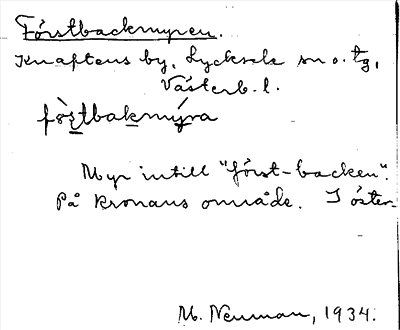 Förstbackmyren.
Knaftens by, Lycksele sn o. tg,
Västerb. l.
fö̀rstbakmýra
Myr intill "först-backen".
På kronans område. I öster-
M. Neuman, 1934.